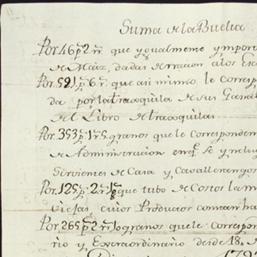 Suma de la Buelta
Por 46 p.s 2 r.s que ygualmente ymport
de Maiz, dadas de racion a los
Por 521 p.s 6 r.s que asi mismo le corresp
da por la trasquila de sus Gana
del Libro de trasquilas
Por 353 p.s 1 r.s granos que le corresponden
de Administracion en q.e se yncluy
Sirvientes de Casa, y Cavallerangos
Por 125 p.s 2 r.s que tubo de Costos la m
Ciejas, cuios Productos
Por 265 p.s granos que le correspon
rio y Extraordinario desde 18